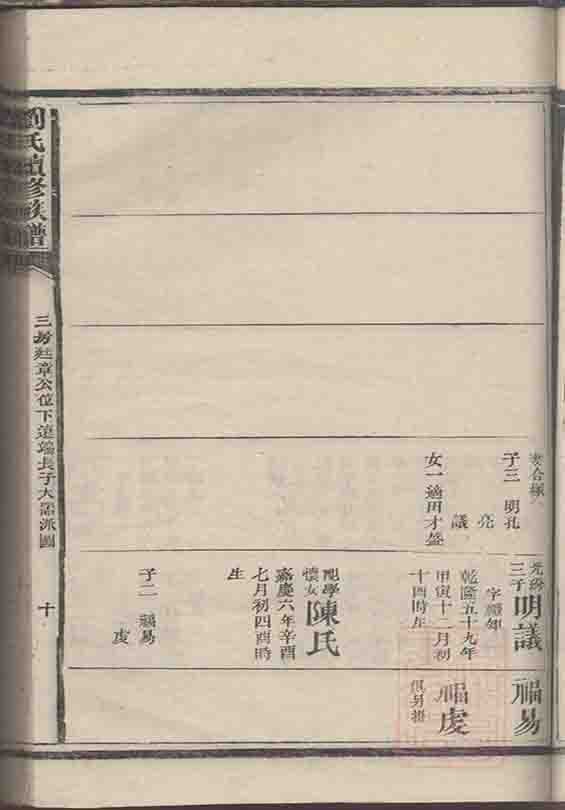 妻合極
子三 明孔
亮
議
女一適田才盛
光份
三子
明議
字
乾隆五十九年
甲寅十二月初
十酉時生
配學
懷女
陳氏
嘉慶六年辛酉
七月初四酉時
生
子二 福易
虔
福易
福虔
俱另提
劉氏續修族譜
三房廷章公位下達端長子大派圖
十